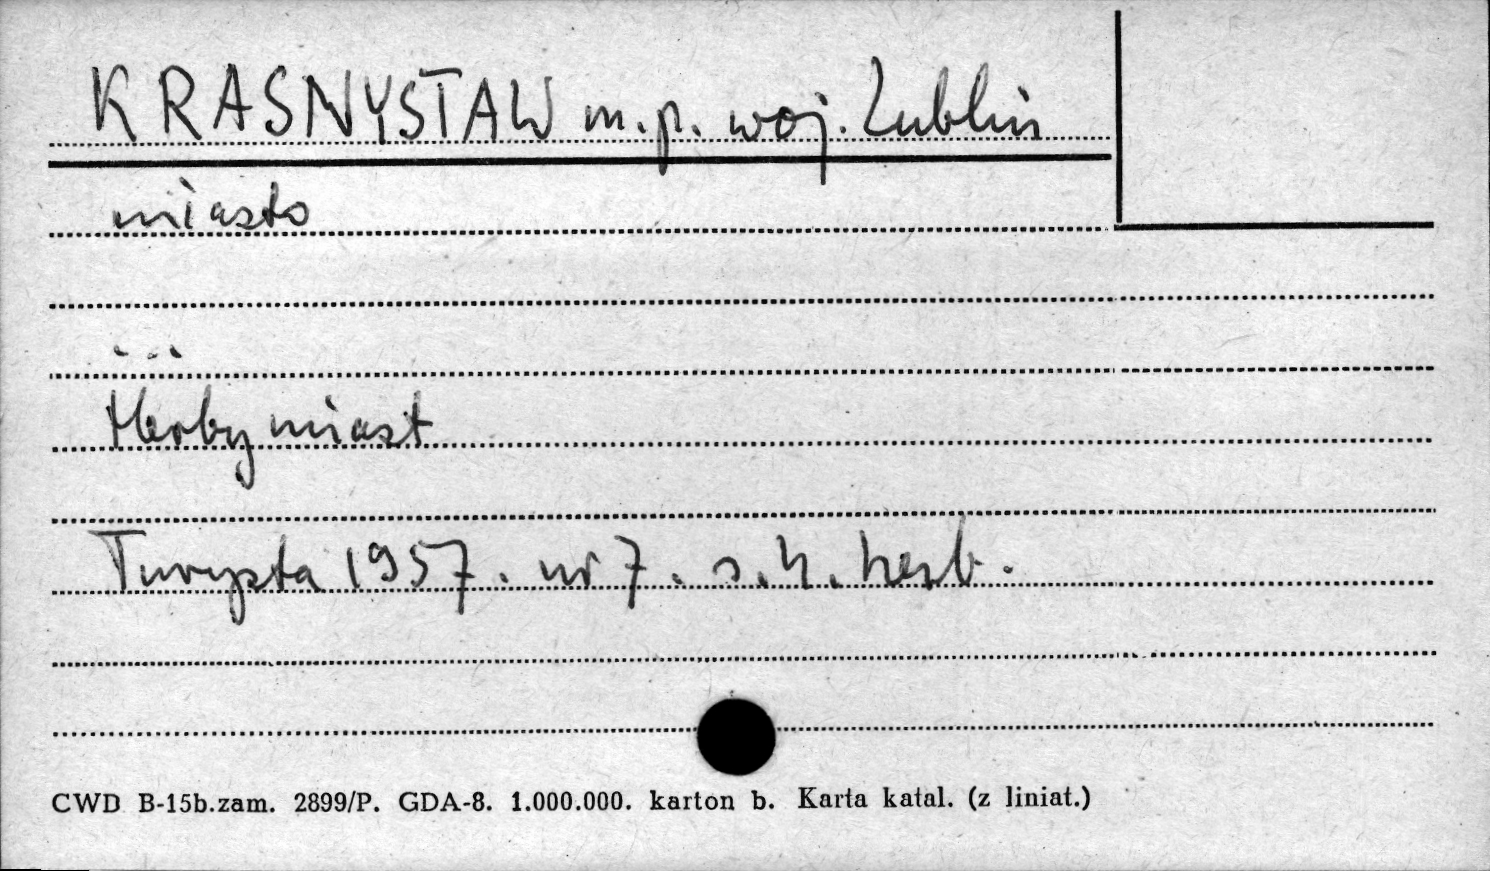 KRASNYSTAW m.p. woj. Lublin
miasto
Herby miast
Turysta 1957. nr 7. s.4. herb.
CWD B-15b.zam. 2899/P. GDA-8. 1.000.000. karton b. Karta katal. (z liniat.)